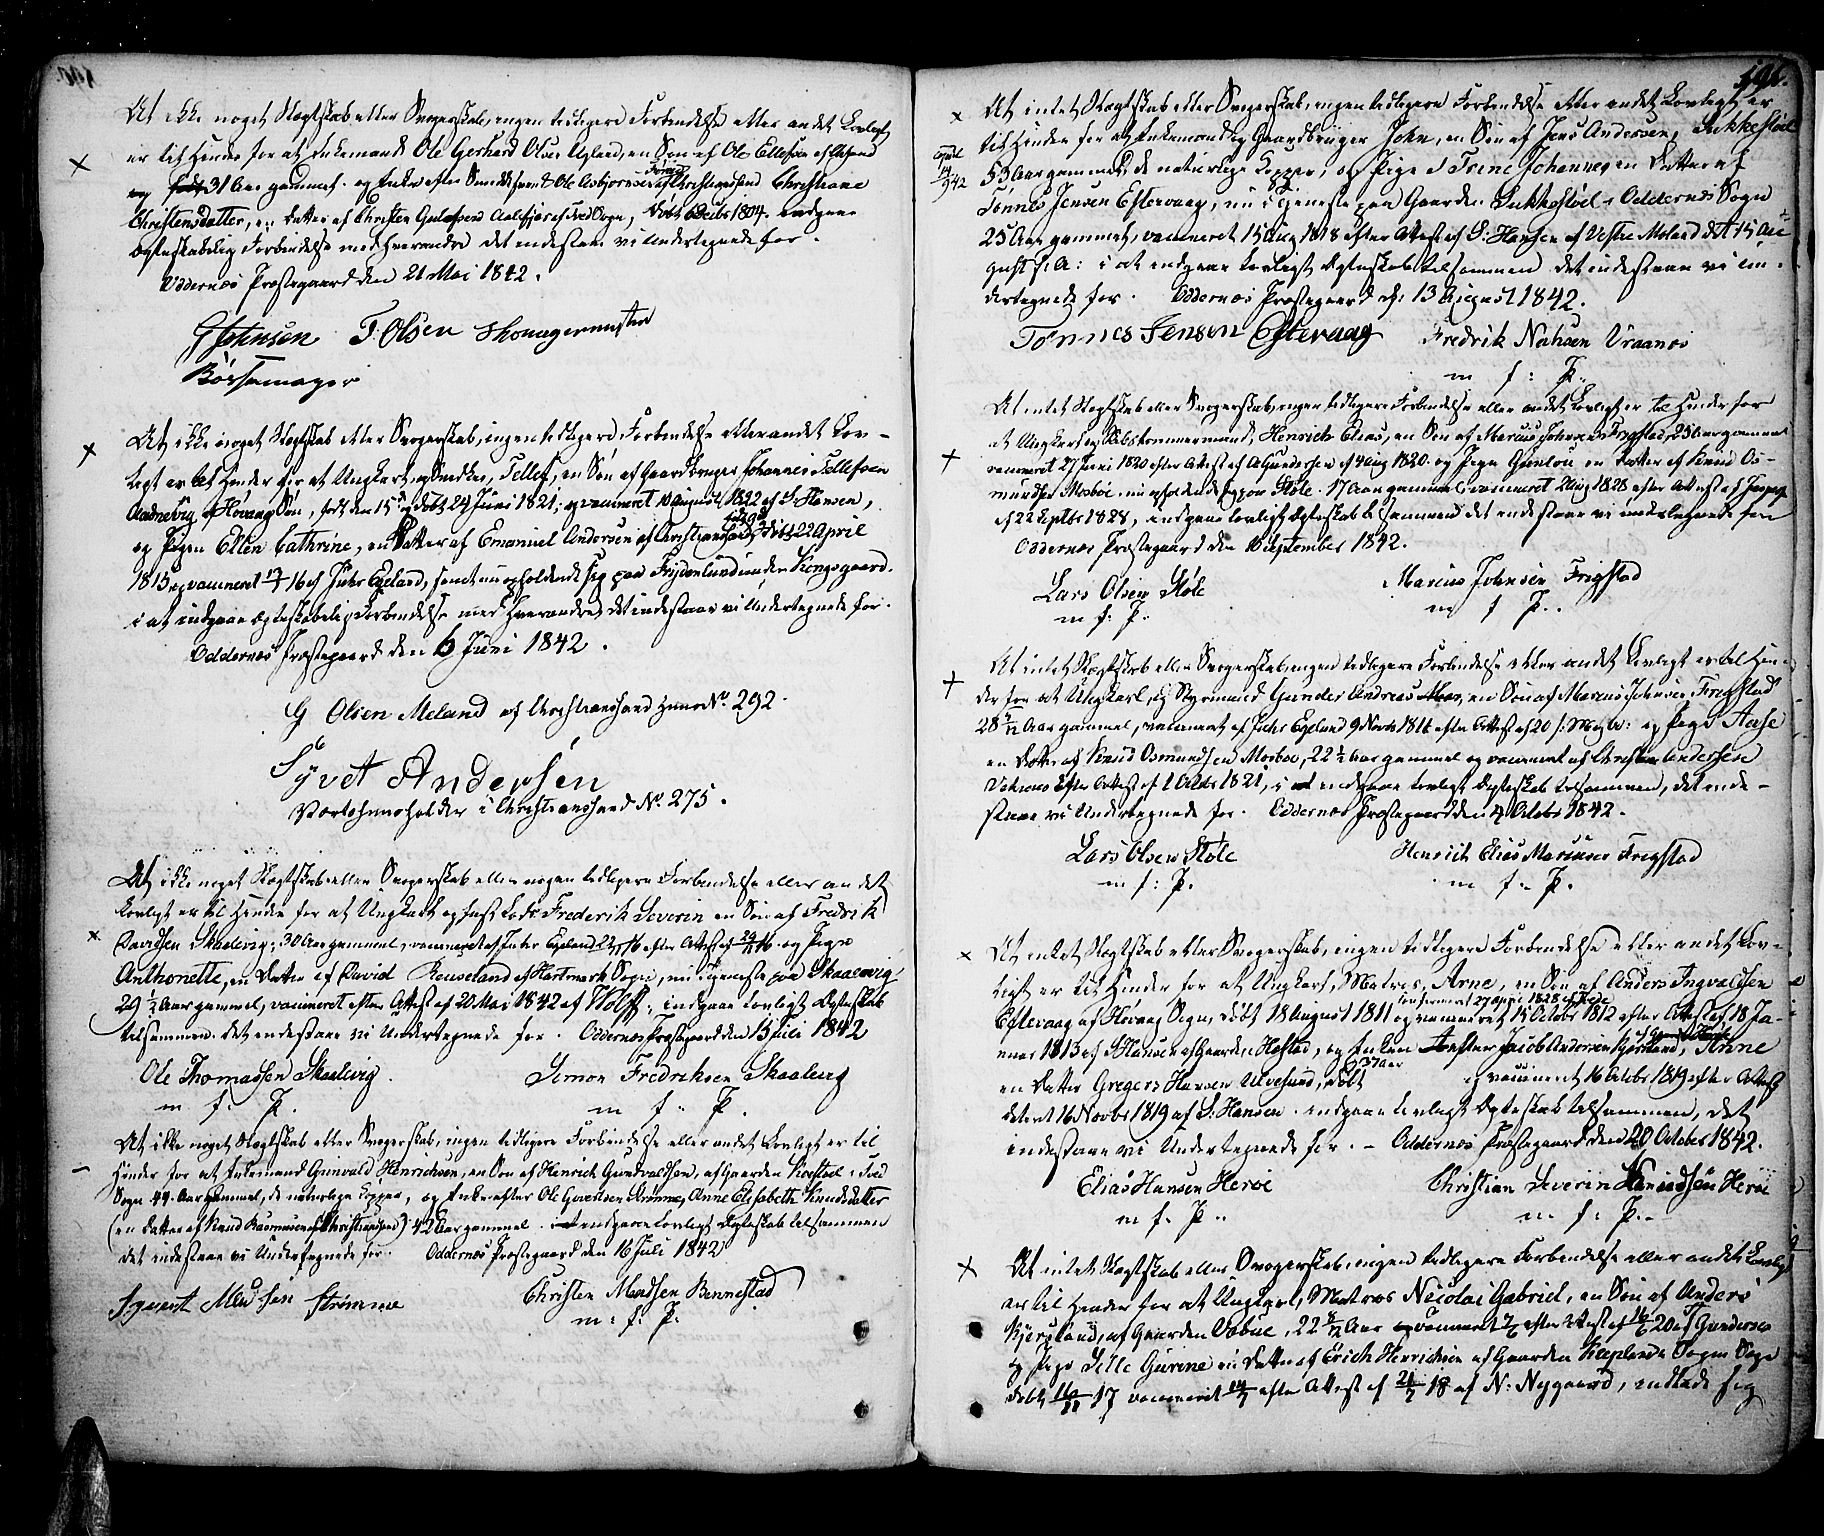 At ikke noget Slægtskab eller Svogerskab, ingen tidligere Forbindelse eller andet Lovligt
er til Hinder for at Enkemand Ole Gerhard Olsen Ugland, en Søn af Ole Ellefsen af
31 Aar gammel. og Enke efter Ole Asbjørnsen af Christianssand Christiane
Christensdatter, en Datter af Christen Aalefjær af Tved Sogn, døbt 1804. indgaae
Ægteskabelig Forbindelse med hverandre det indestaae vi Undertegnede for.
Oddernes Præstegaard den 21 Mai 1842.
G Johnsen F. Olsen Skomagermester
Børsemager
At ikke noget Slægtskab eller Svogerskab, ingen tidligere Forbindelse eller andet Lov-
ligt er til Hinder for at Ungkarl, og Smed, Tellef, en Søn af Gaardbruger Johannes Tellefsen
Aadnevig af Høvaag Sogn, født den 15 og døbt 24 Juni 1821, og vaccineret 10 August 1822 af S. Hansen,
og Pigen Ellen Cathrine, en Datter af Emanuel Andersen af Christianssand, døbt 22 April
1815 og vaccineret 16 af Juhr Egeland, samt nu opholdende sig paa Frydenlund under Kongsgaard.
i at indgaae ægteskabelig Forbindelse med hverandre, det indestaae vi Undertegnede for.
Oddernes Præstegaard den 6 Juni 1842.
G Olsen Meland af Christianssand Huus No 292.
Syvet Andersen
Værtshuusholder i Christianssand No 275.
At ikke noget Slægtskab eller Svogerskab eller nogen tidligere Forbindelse eller andet
Lovligt er til Hinder for at Ungkarl og fast Lods Frederik Severin en Søn af Fredrik
Davidsen Skaalevig, 30 Aar gammel, vaccineret af Juhr Egeland 16 efter Attest af 16. og Pige
Anthonette, en Datter af David Rouseland af Hartmark Sogn, nu i Tjeneste paa Skaalevig
29 1/2 Aar gammel, vaccineret efter Attest af 20 Mai 1842 af Wolff, indgaae lovligt Ægteskab
tilsammen. det indestaae vi Undertegnede for. Oddernes Præstegaard den 15 Juli 1842
Ole Thomassen Skaalevig. Simon Fredriksen Skaalevig
m f: P. m f: P.
At ikke noget Slægtskab eller Svogerskab, ingen tidligere Forbindelse eller andet Lovligt er til
Hinder for at Enkemand Gunvald Henrichsen, en Søn af Henrich Gundvaldsen, af Gaarden Kostøl i Tved
Sogn 44 Aar gammel, de naturlige Kopper, og Enke efter Ole Strømme, Anne Elisabeth Knudsdatter
(en Datter af Knud Rasmussen af Christianssand) 42 Aar gammel. indgaae Lovligt Ægteskab tilsammen
det indestaae vi Undertegnede for. Oddernes Præstegaard den 16 Juli 1842
Syvert Madsen Strømme Christen Madsen Bennestad
m: f: P.
196.
At intet Slægtskab eller Svogerskab, ingen tidligere Forbindelse eller andet Lovligt er
til Hinder for at Enkemand og Gaardbruger John, en Søn af Jens Andersen, Sukkestøl
53 Aar gammel, de naturlige Kopper, og Pige Trine Johanne, en Datter af
Tønnes Jensen Eftevaag, nu i Tjeneste paa Gaarden Sukkestøl i Oddernes Sogn
25 Aar gammel, vaccineret 15 Aug 1818 efter Attest af S. Hansen af Vestre Moland dat 15 Au-
gust s. A: i at indgaae lovligt Ægteskab tilsammen det indestaae vi Un-
dertegnede for. Oddernes Præstegaard d: 13 August 1842.
Tønnes Jensen Eftevaag Fredrik Nielsen Vraanes
m f: P.
At intet Slægtskab eller Svogerskab, ingen tidligere Forbindelse eller andet Lovligt er til Hinder for
at Ungkarl og Skibstømmermand, Henrich Elias, en Søn af Marcus Johnsen Frigstad, 25 Aar gammel
vaccineret 27 Juni 1820 efter Attest af A Gundersen af 4 Aug 1820. og Pige Gunlou en Datter af Knud Os-
mundsen Mosbøe, nu opholdende sig paa Støle. 17 Aar gammel vaccineret 2 Aug 1828 efter Attest af
af 22 Septbr 1828, indgaae lovligt Ægteskab tilsammen det indestaae vi undertegnede for
Oddernes Præstegaard den 10 September 1842.
Lars Olsen Støle Marcus Johnsen Frigstad
m f: P. m f P.
At intet Slægtskab eller Svogerskab, ingen tidligere Forbindelse eller andet Lovligt er til Hin-
der for at Ungkarl, og Styrmand Gunder Andreas, en Søn af Marcus Johnsen Frigstad
28 Aar gammel, vaccineret af Juhr Egeland 9 Novb 1816 efter Attest af 20 s: M: og Pige Aase
en Datter af Knud Osmundsen Mosbøe, 22 1/2 Aar gammel og vaccineret af Christen Andersen
efter Attest af 1 Octbr 1821, i at indgaae lovligt Ægteskab tilsammen, det inde-
staae vi Undertegnede for. Oddernes Præstegaard den 4 Octobr 1842.
Lars Olsen Støle Henrich Elias Marcusen Frigstad
m f: P. m f: P.
At intet Slægtskab eller Svogerskab, ingen tidligere Forbindelse eller andet Lov-
ligt er til Hinder for at Ungkarl, Matros, Arne, en Søn af Anders Ingvaldsen
Eftevaag af Høvaag Sogn, døbt 18 August 1811 og vaccineret 15 Octobr 1812 efter Attest af 18 Ja-
nuar 1813 af S Hansen af Gaarden Høstad, og Enken efter Jacob Andersen Kjørsland, Anne
en Datter Gregers Hansen Ulvesund, 37 Aar og vaccineret 16 Octobr 1819 efter Attest
dateret 16 Novbr 1819 af S. Hansen. indgaae lovligt Ægteskab tilsammen, det
indestaae vi Undertegnede for. - Oddernes Præstegaard den 20 October 1842.
Elias Hansen Herøe Christian Severin Herøe
m f: P. m: f: P.
At intet Slægtskab eller Svogerskab, ingen tidligere Forbindelse eller andet Lovligt
er til Hinder for at Ungkarl, Matros Nicolai Gabriel, en Søn af Anders
af Gaarden Dobue, 22 Aar og vaccineret efter Attest af 20 af Gundersen
og Pige Sille Gurine en Datter af Erich Henrichsen af Gaarden i Sogne Sogn
døbt 17 vaccineret efter Attest af 18 af N: Nygaard, indlade sig